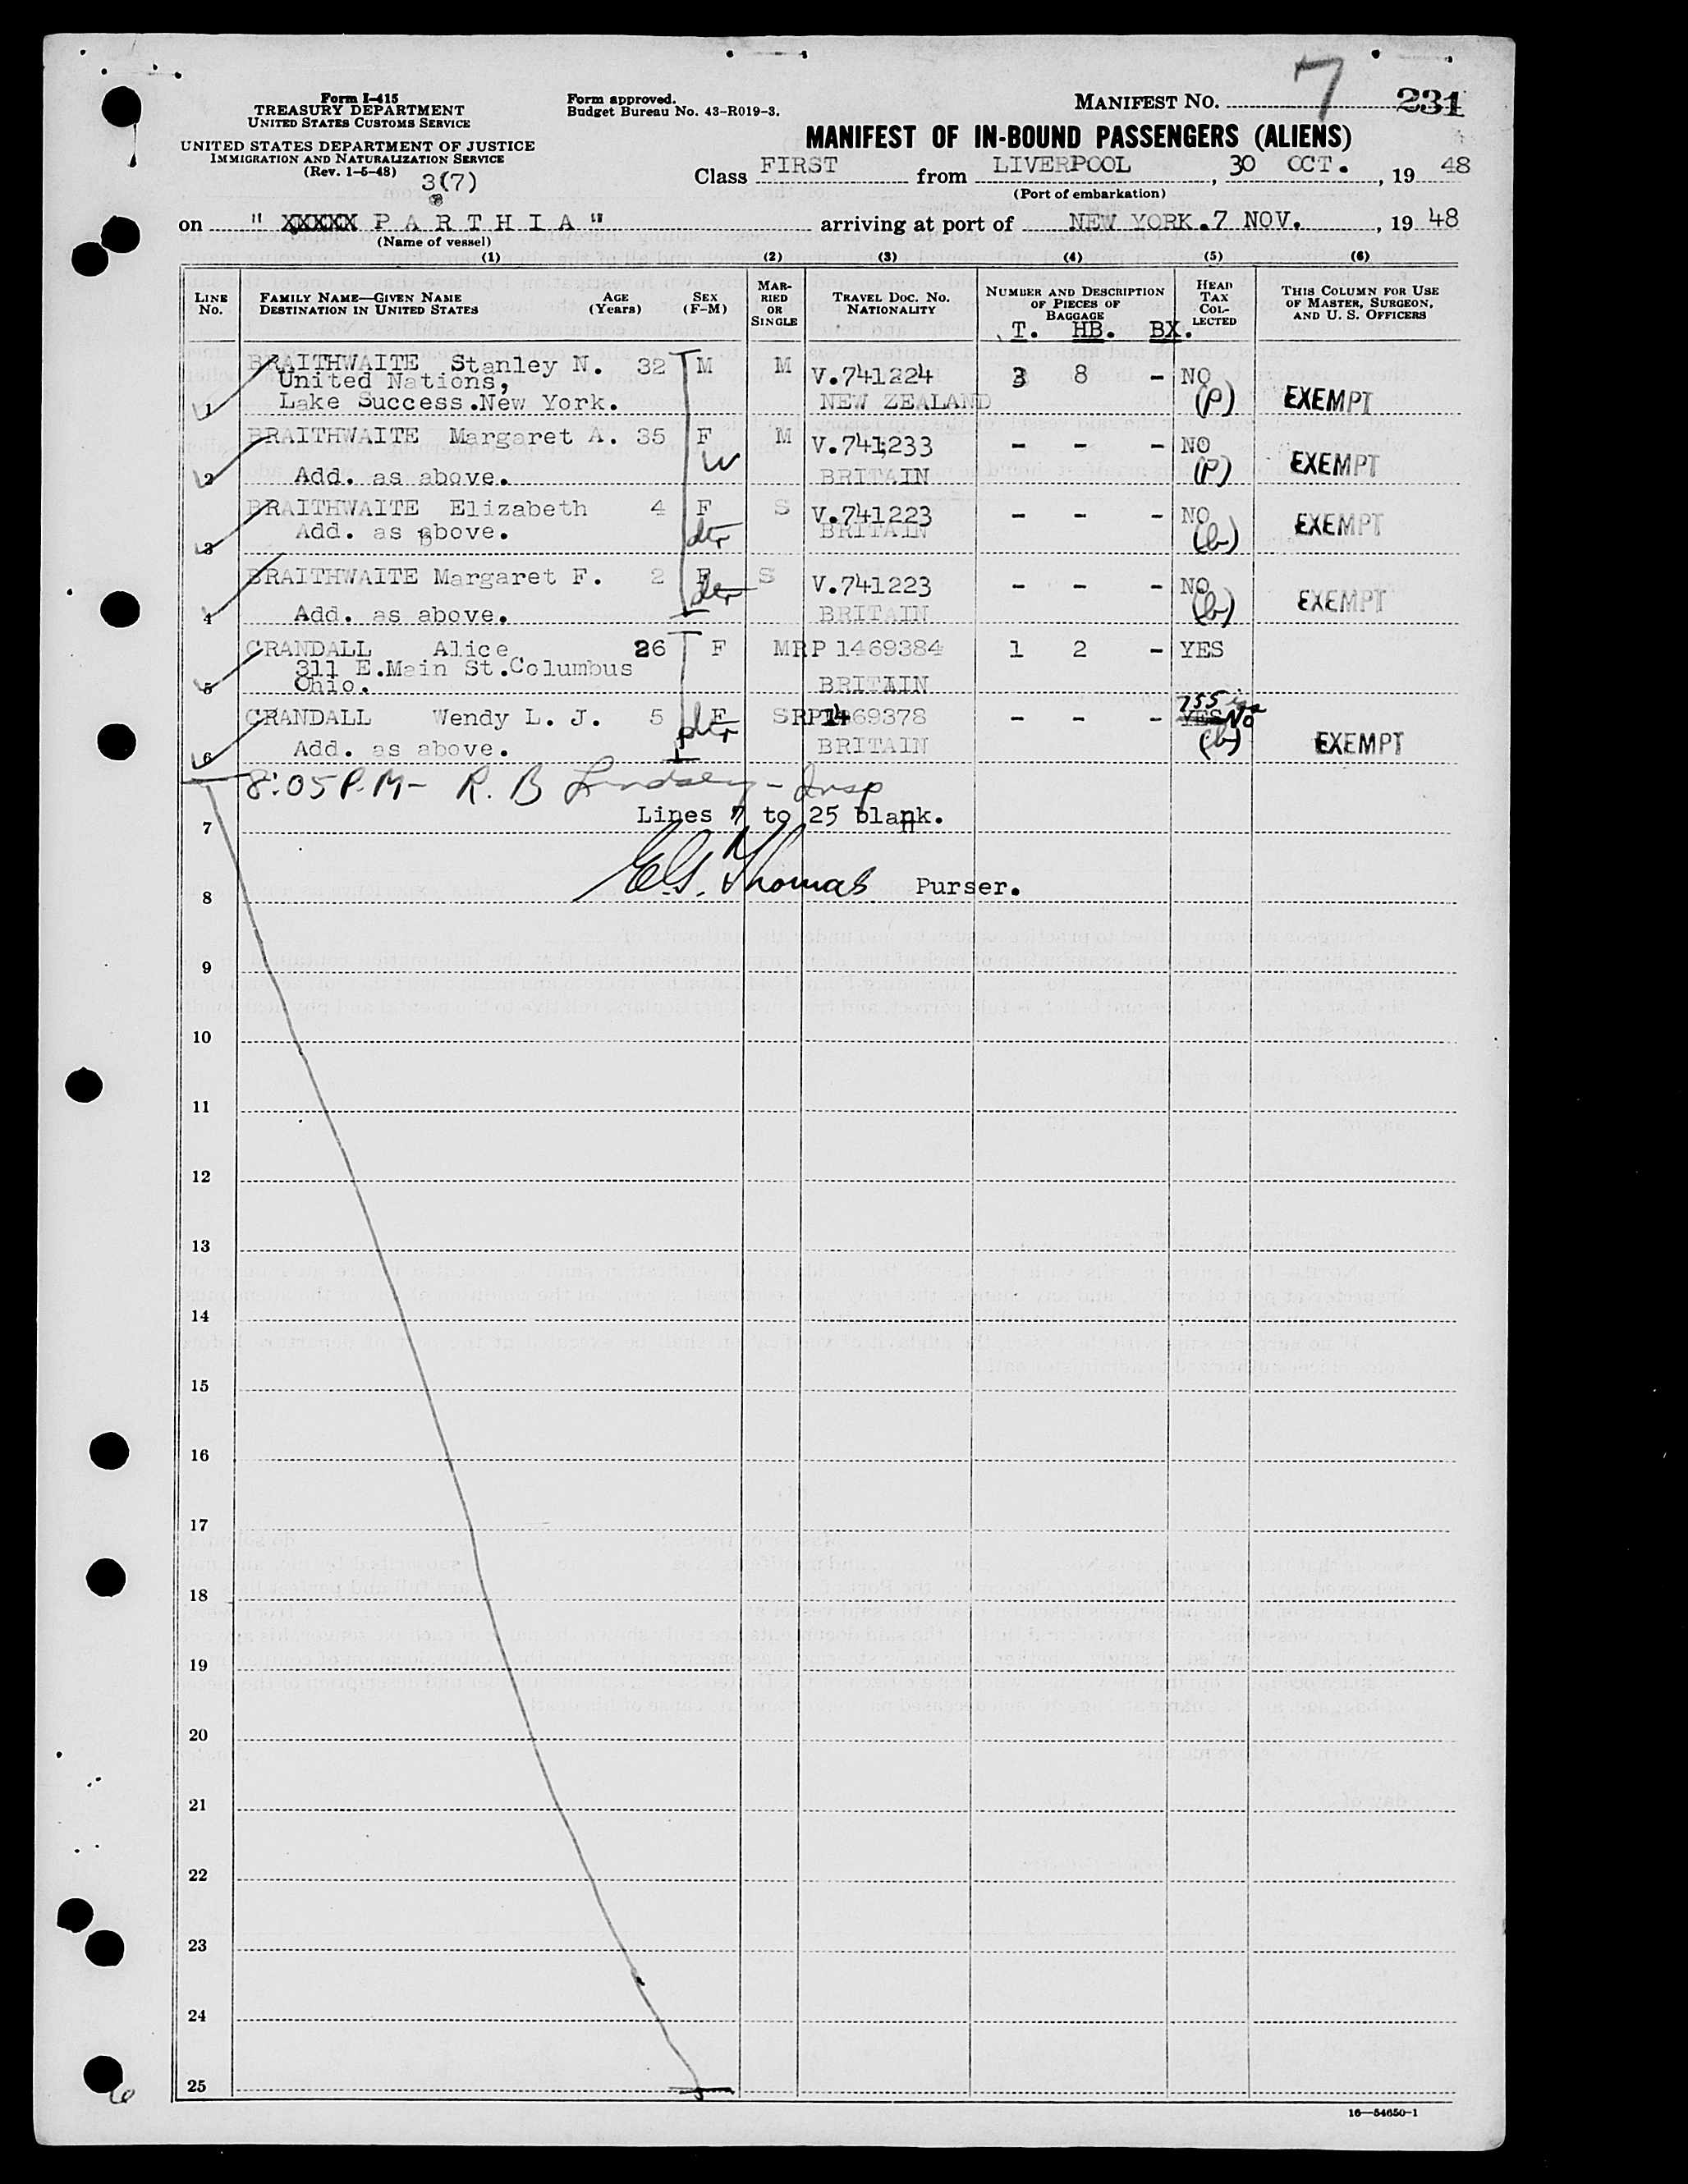 7 231
Form I-415
TREASURY DEPARTMENT
UNITED STATES CUSTOMS SERVICE
UNITED STATES DEPARTMENT OF JUSTICE
IMMIGRATION AND NATURALIZATION SERVICE
(Rev. 1-5-48)
3(7)
Form approved.
Budget Bureau No. 43-R019-3.
MANIFEST NO.
MANIFEST OF IN-BOUND PASSENGERS (ALIENS)
Class FIRST from LIVERPOOL, 30 OCT., 19 48
(Port of embarkation)
on "XXXXX PARTHIA" arriving at port of NEW YORK. 7 NOV., 19 48
(Name of vessel)
(1) (2) (3) (4) (5) (6)
LINE No. FAMILY NAME—GIVEN NAME DESTINATION IN UNITED STATES AGE (Years) SEX (F-M) MARRIED OR SINGLE TRAVEL DOC. NO. NATIONALITY NUMBER AND DESCRIPTION OF PIECES OF BAGGAGE HEAD TAX COLLECTED THIS COLUMN FOR USE OF MASTER, SURGEON, AND U. S. OFFICERS
T. HB. BX.
BRAITHWAITE Stanley N. 32 M M V.741224 3 8 - NO
United Nations,
1 Lake Success.New York. NEW ZEALAND (P) EXEMPT
BRAITHWAITE Margaret A. 35 F M V.741233 - - - NO
W
2 Add. as above. BRITAIN (P) EXEMPT
BRAITHWAITE Elizabeth 4 F S V.741223 - - - NO
3 Add. as above. dtr BRITAIN (b) EXEMPT
BRAITHWAITE Margaret F. 2 F S V.741223 - - - NO
dtr
4 Add. as above. BRITAIN (b) EXEMPT
CRANDALL Alice 26 F M RP 1469384 1 2 - YES
311 E.Main St.Columbus
5 Ohio. BRITAIN
CRANDALL Wendy L. J. 5 F S RP1469378 - - - YES No
dtr
6 Add. as above. BRITAIN (b) EXEMPT
8:05 P.M- R. B Lindsey - Insp
Lines 7 to 25 blank.
7
E.G. Thomas Purser.
8
9
10
11
12
13
14
15
16
17
18
19
20
21
22
23
24
25
16—54650-1